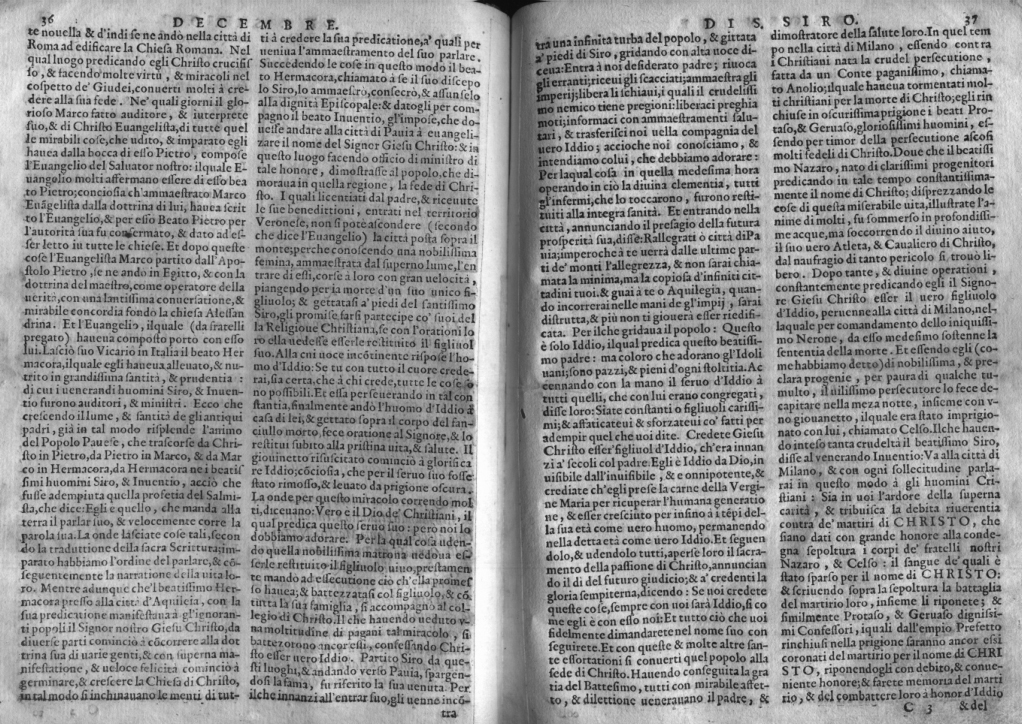 36
DECEMBRE.
te nouella & d'indi se ne andò nella città di
Roma ad edificare la Chiesa Romana. Nel
qual luogo predicando egli Christo crucifis
so, & facendo molte virtù, & miracoli nel
cospetto de' Giudei, conuertì molti à cre-
dere alla sua fede. Ne' quali giorni il glo-
rioso Marco fatto auditore, & interprete
suo, & di Christo Euangelista, di tutte quel
le mirabili cose, che udito, & imparato egli
hauea dalla bocca di esso Pietro, compose
l'Euangelio del Saluator nostro: ilquale E-
uangelio molti affermano essere di esso bea
to Pietro; conciosia ch'ammaestrato Marco
Euãgelista dalla dottrina di lui, hauea scrit
to l'Euangelio, & per esso Beato Pietro per
l'autorità sua fu confermato, & dato ad es-
ser letto in tutte le chiese. Et dopo queste
cose l'Euangelista Marco partito dall'Apo-
stolo Pietro, se ne andò in Egitto, & con la
dottrina del maestro, come operatore della
uerità, con una santissima conuersatione, &
mirabile concordia fondo la chiesa Alessan
drina. Et l'Euangelio, ilquale (da fratelli
pregato) haueua composto portò con esso
lui. Lasciò suo Vicario in Italia il beato Her
macora, ilquale egli haueua alleuato, & nu-
trito in grandissima santità, & prudentia:
di cui i uenerandi huomini Siro, & Inuen-
tio furono auditori, & ministri. Ecco che
crescendo il lume, & santità de gli antiqui
padri, già in tal modo risplende l'animo
del Popolo Pauese, che trascorse da Chri-
sto in Pietro, da Pietro in Marco, & da Mar
co in Hermacora, da Hermacora ne i beatis
simi huomini Siro, & Inuentio, acciò che
fusse adempiuta quella profetia del Salmi-
sta, che dice: Egli è quello, che manda alla
terra il parlar suo, & velocemente corre la
parola sua. La onde lasciate cose tali, secon
do la traduttione della sacra Scrittura; im-
parato habbiamo l'ordine del parlare, & cõ-
seguentemente la narratione della uita lo-
ro. Mentre adunque che'l beatissimo Her-
macora presso alla città d'Aquileia, con la
sua predicatione manifestaua à gl'ignoran-
ti popoli il Signor nostro Giesu Christo, da
diuerse parti cominciò à cõcorrere alla dot
trina sua di uarie genti, & con superna ma-
nifestatione, & ueloce felicità cominciò à
germinare, & crescere la Chiesa di Christo,
in tal modo si inchinauano le menti di tut-
ti à credere alla sua predicatione, a' quali per
ueniua l'ammaestramento del suo parlare.
Succedendo le cose in questo modo il bea-
to Hermacora, chiamato à se il suo discepo
lo Siro, lo ammaestrò, consecrò, & assunselo
alla dignità Episcopale: & datogli per com-
pagno il beato Inuentio, gl'impose, che do-
uesse andare alla città di Pauia à euangeli-
zare il nome del Signor Giesu Christo: & in
questo luogo facendo officio di ministro di
tale honore, dimostrasse al popolo, che di-
moraua in quella regione, la fede di Chri-
sto. I quali licentiati dal padre, & riceuute
le sue benedittioni, entrati nel territorio
Veronese, non si potè ascondere (secondo
che dice l'Euangelio) la città posta sopra il
monte; perche conoscendo una nobilissima
femina, ammaestrata dal superno lume, l'en
trare di essi, corse à loro con gran uelocità,
piangendo per la morte d'un suo unico fi-
gliuolo; & gettatasi a' piedi del santissimo
Siro, gli promise farsi partecipe co' suoi del
la Religioue Christiana, se con l'orationi lo
ro ella uedesse esserle restituito il figliuol
suo. Alla cui uoce incõtinente rispose l'ho-
mo d'Iddio: Se tu con tutto il cuore crede-
rai, sia certa, che à chi crede, tutte le cose so
no possibili. Et essa perseuerando in tal con
stantia, finalmente andò l'huomo d'Iddio à
casa di lei, & gettato sopra il corpo del fan-
ciullo morto, fece oratione al Signore, & lo
restituì subito alla pristina uita, & salute. Il
giouinetto risuscitato cominciò à glorifica
re Iddio; cõciosia, che per il seruo suo fosse
stato rimosso, & leuato da prigione oscura.
La onde per questo miracolo correndo mol
ti, diceuano: Vero è il Dio de' Christiani, il
qual predica questo seruo suo: però noi lo
dobbiamo adorare. Per la qual cosa uden-
do quella nobilissima matrona uedoua es-
serle restituito il figliuol uiuo, prestamen-
te mandò ad essecutione ciò ch'ella promes
so hauea; & battezzatasi col figliuolo, & cõ
tutta la sua famiglia, si accompagnò al col-
legio di Christo. Il che hauendo ueduto v-
na moltitudine di pagani tal miracolo, si
battezorono ancor essi, confessando Chri-
sto esser uero Iddio. Partito Siro da que-
sti luoghi, & andando verso Pauia, spargen-
dosi la fama, fu riferito la sua uenuta. Per
ilche innanzi all'entrar suo, gli uenne incõ-
tra
DI S. SIRO.
37
tra una infinita turba del popolo, & gittata
a' piedi di Siro, gridando con alta uoce di-
ceua: Entra à noi desiderato padre; riuoca
gli erranti; riceui gli scacciati; ammaestra gli
imperij; libera li schiaui, i quali il crudelissi
mo nemico tiene pregioni: liberaci preghia
moti; informaci con ammaestramenti salu-
tari, & trasferisci noi nella compagnia del
uero Iddio; accioche noi conosciamo, &
intendiamo colui, che debbiamo adorare:
Per laqual cosa in quella medesima hora
operando in ciò la diuina clementia, tutti
gl'infermi, che lo toccarono, furono resti-
tuiti alla integra sanità. Et entrando nella
città, annunciando il presagio della futura
prosperità sua, disse: Rallegrati ò città di Pa
uia; imperoche à te uerrà dalle ultime par-
ti de' monti l'allegrezza, & non sarai chia-
mata la minima, ma la copiosa d'infiniti cit-
tadini tuoi. & guai à te o Aquilegia, quan-
do incorrerai nelle mani de gl'impij, sarai
distrutta, & più non ti giouerà esser riedifi-
cata. Per ilche gridaua il popolo: Questo
è solo Iddio, ilqual predica questo beatissi-
mo padre: ma coloro che adorano gl'Idoli
uani; sono pazzi, & pieni d'ogni stoltitia. Ac
cennando con la mano il seruo d'Iddio à
tutti quelli, che con lui erano congregati,
disse loro: Siate constanti o figliuoli carissi-
mi; & affaticateui & sforzateui co' fatti per
adempir quel che uoi dite. Credete Giesu
Christo esser figliuol d'Iddio, ch'era innan
zi a' secoli col padre: Egli è Iddio da Dio, in
uisibile dall'inuisibile, & e onnipotente, &
crediate ch'egli prese la carne della Vergi-
ne Maria per ricuperar l'humana generatio
ne, & esser cresciuto per insino à i tẽpi del-
la sua età come uero huomo, permanendo
nella detta età come uero Iddio. Et seguen
dolo, & udendolo tutti, aperse loro il sacra-
mento della passione di Christo, annuncian
do il dì del futuro giudicio; & a' credenti la
gloria sempiterna, dicendo: Se uoi credete
queste cose, sempre con uoi sarà Iddio, sì co
me egli è con esso noi: Et tutto ciò che uoi
fidelmente dimandarete nel nome suo con
seguirete. Et con queste & molte altre san-
te essortationi si conuertì quel popolo alla
fede di Christo. Hauendo conseguita la gra
tia del Battesimo, tutti con mirabile affet-
to, & dilettione uenerauano il padre, &
dimostratore della salute loro. In quel tem
po nella città di Milano, essendo contra
i Christiani nata la crudel persecutione,
fatta da un Conte paganissimo, chiama-
to Anolio; ilquale haueua tormentati mol-
ti christiani per la morte di Christo; egli rin
chiuse in oscurissima prigione i beati Pro-
taso, & Geruaso, gloriosissimi huomini, es-
sendo per timor della persecutione ascosi
molti fedeli di Christo. Doue che il beatissi
mo Nazaro, nato di clarissimi progenitori
predicando in tale tempo constantissima-
mente il nome di Christo; disprezzando le
cose di questa miserabile uita, illustrate l'a-
nime di molti, fu sommerso in profondissi-
me acque, ma soccorrendo il diuino aiuto,
il suo uero Atleta, & Caualiero di Christo,
dal naufragio di tanto pericolo si trouò li-
bero. Dopo tante, & diuine operationi,
constantemente predicando egli il Signo-
re Giesu Christo esser il uero figliuolo
d'Iddio, peruenne alla città di Milano, nel-
laquale per comandamento dello iniquissi-
mo Nerone, da esso medesimo sostenne la
sententia della morte. Et essendo egli (co-
me habbiamo detto) di nobilissima, & pre-
clara progenie, per paura di qualche tu-
multo, il uilissimo persecutore lo fece de-
capitare nella meza notte, insieme con v-
no giouanetto, ilquale era stato imprigio-
nato con lui, chiamato Celso. Ilche hauen-
do inteso tanta crudeltà il beatissimo Siro,
disse al venerando Inuentio: Va alla città di
Milano, & con ogni sollecitudine parla-
rai in questo modo à gli huomini Cri-
stiani: Sia in uoi l'ardore della superna
carità, & tribuisca la debita riuerentia
contra de' martiri di CHRISTO, che
siano dati con grande honore alla conde-
gna sepoltura i corpi de' fratelli nostri
Nazaro, & Celso: il sangue de' quali è
stato sparso per il nome di CHRISTO:
& scriuendo sopra la sepoltura la battaglia
del martirio loro, insieme li riponete; &
similmente Protaso, & Geruaso dignissi-
mi Confessori, i quali dall'empio Prefetto
rinchiusi nella prigione saranno ancor essi
coronati del martirio per il nome di CHRI
STO, riponendogli con debito, & conue-
niente honore; & farete memoria del marti
rio, & del combattere loro à honor d'Iddio
C 3
& del